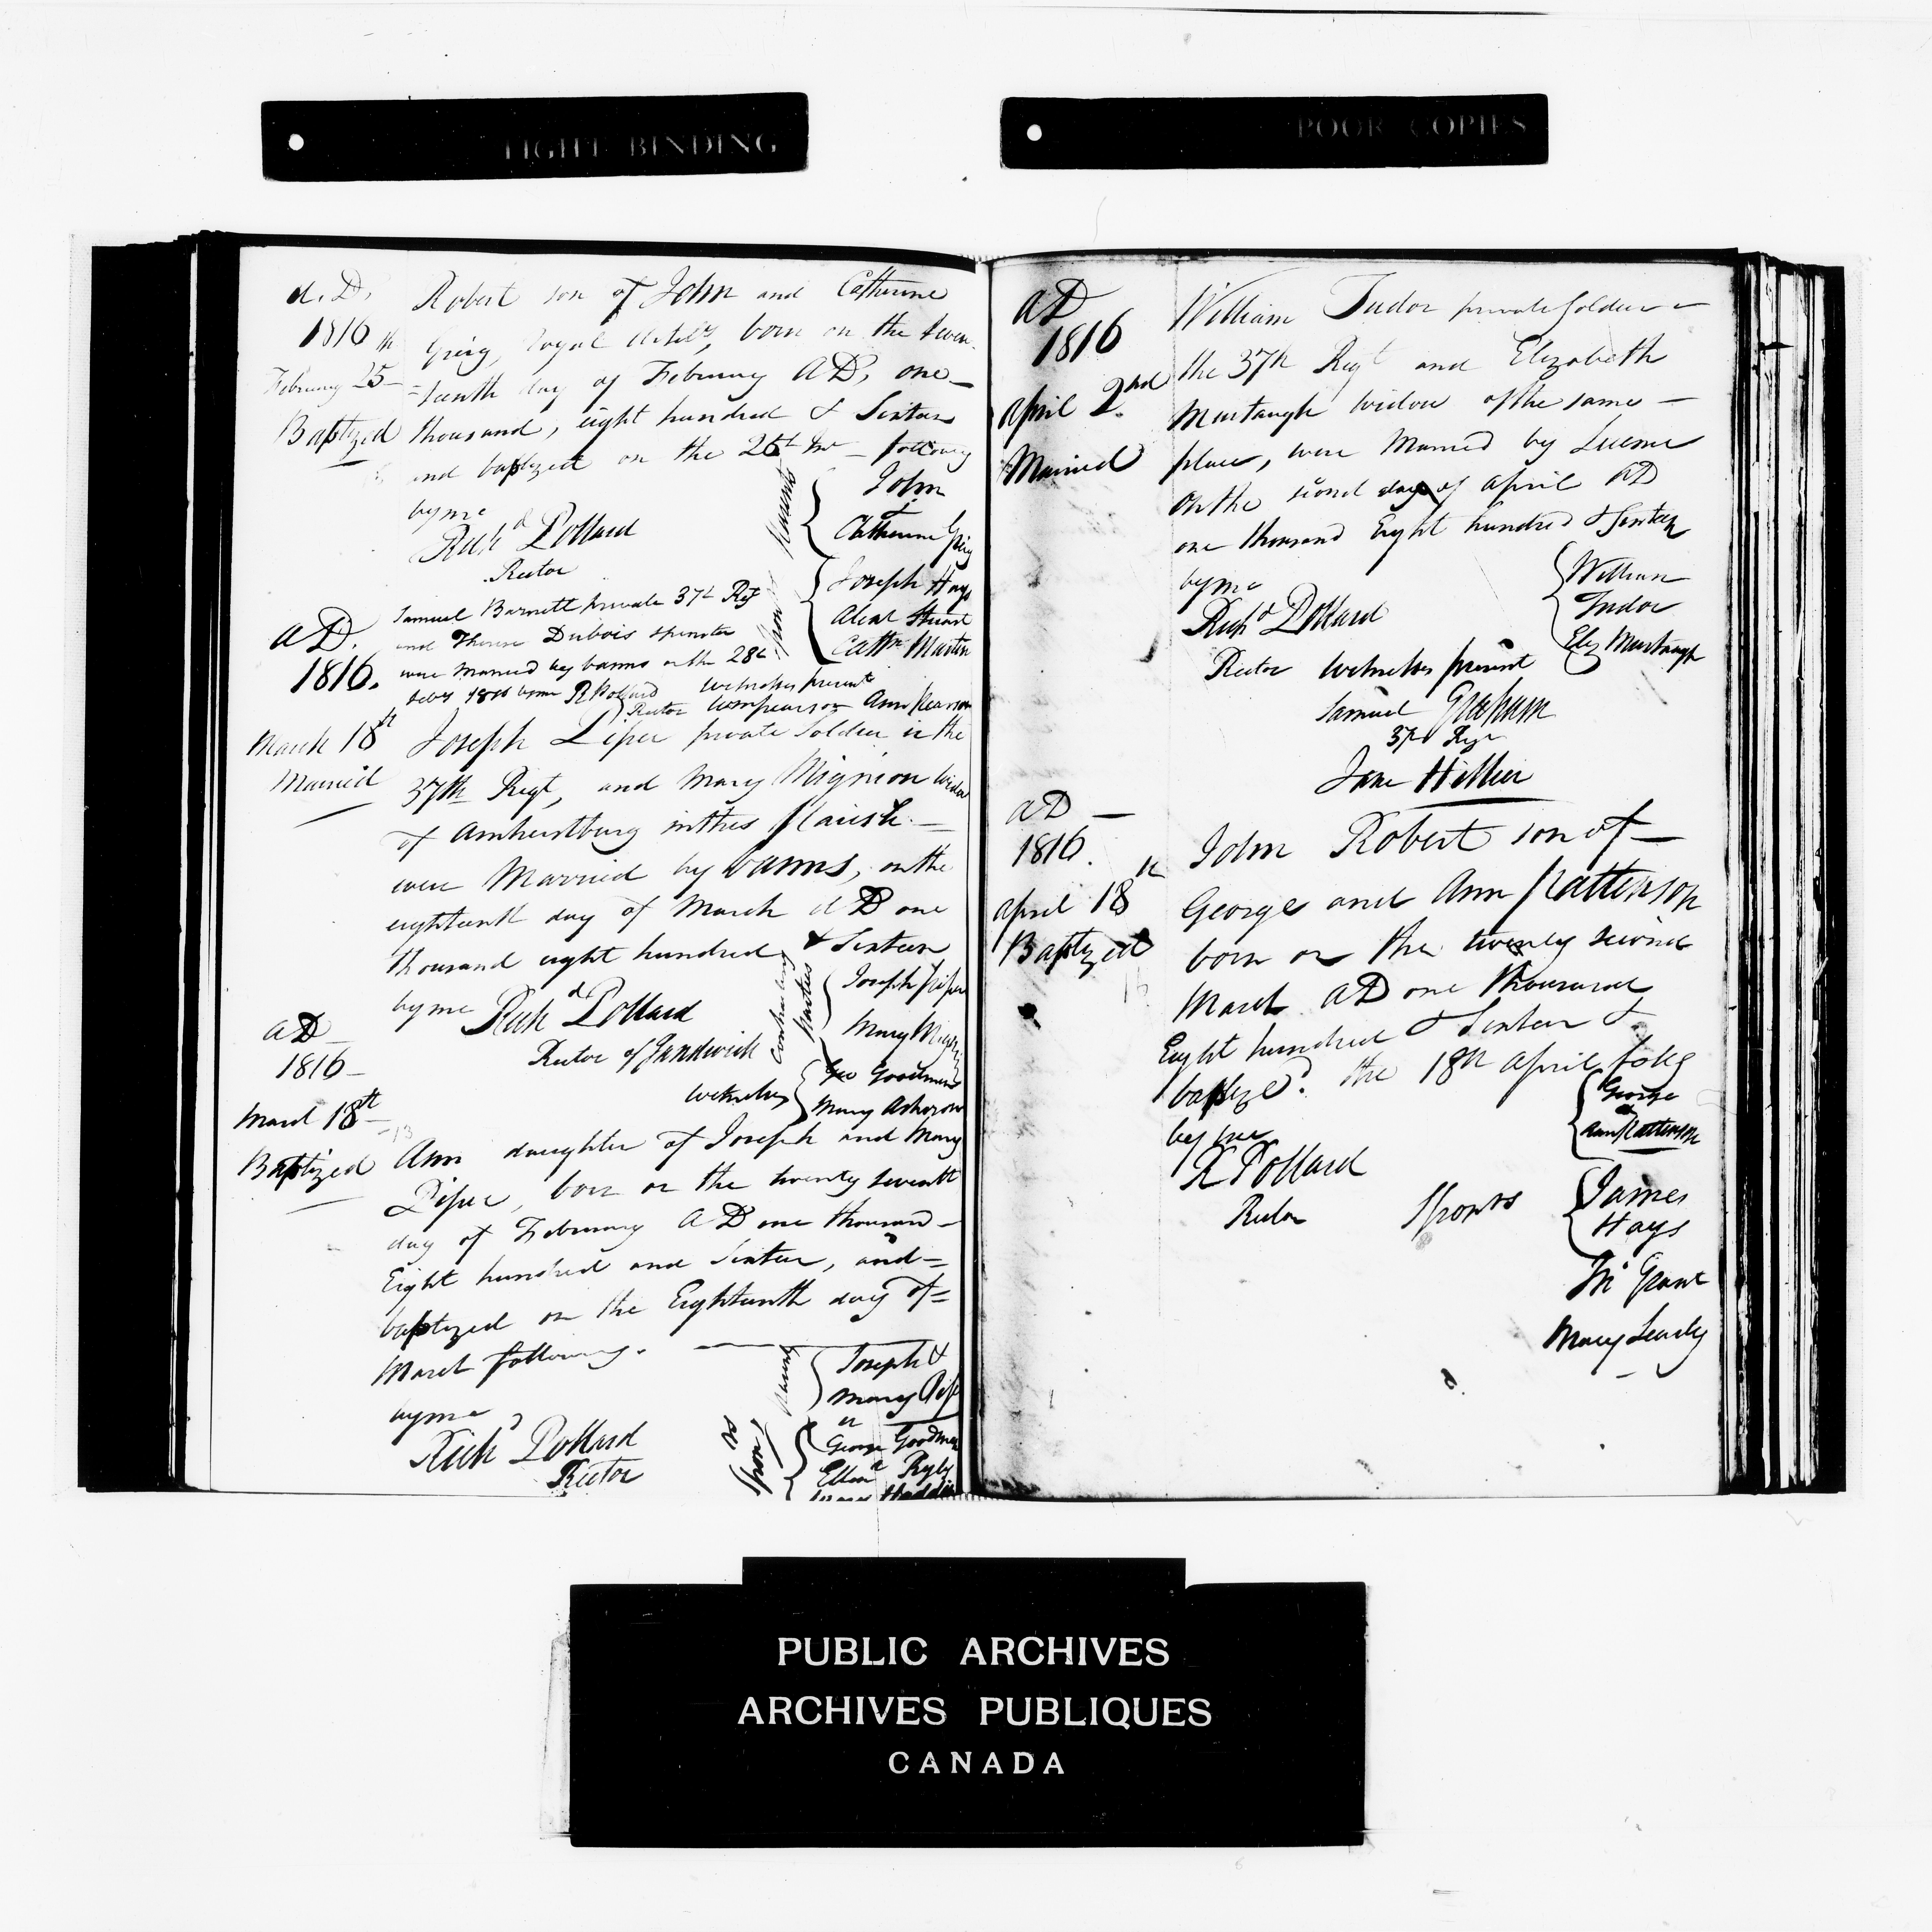 TIGHT BINDING
POOR COPIES
A.D.
1816
February 25th
Baptized
Robert son of John and Catherine
Greig, Royal Artily, born on the seven-
=teenth day of February AD, one
thousand, eight hundred & Sixteen
and baptized on the 25th following
by me
Richd Pollard
Rector
Parents
John
&
Catherine Greig
Joseph Hays
Alexr Stuart
Cathe Martin
AD.
1816.
Samuel Barnett private 37th Regt
and Therese Dubois spinster
were Married by banns on the 28th
R Pollard
Rector
Witnesses present
Wm Pearson Ann Pearson
March 18th
Married
Joseph Piper private Soldier in the
37th Regt, and Mary Mignion Widow
of Amherstburg in this Parish
were Married by banns, on the
eighteenth day of March AD one
thousand eight hundred & Sixteen
by me Richd Pollard
Rector of Sandwich
Contracting
parties
Joseph Piper
Mary
Witnesses
Geo Goodman
Mary
AD
1816
March 18th
Baptized
Ann daughter of Joseph and Mary
Piper, born on the twenty seventh
day of February AD one thousand
Eight hundred and Sixteen, and=
baptized on the Eighteenth day of=
March following.
by me
Richd Pollard
Rector
Parents
Joseph &
Mary
Sponrs
George Goodman
AD
1816
April 2nd
Married
William Tudor private Soldier
the 37th Regt and Elizabeth
Murtaugh Widow of the same
place, were Married by License
On the second day of April AD
one thousand Eight hundred & Sixteen
by me
Richd Pollard
Rector
William
Tudor
Eliz Murtaugh
Witnesses present
Samuel Graham
37th Regt
Jane Hillier
AD
1816.
April 18th
Baptized
John Robert son of
George and Ann Pattinson
born on the twenty second
March AD one thousand
Eight hundred & Sixteen &
baptized the 18th April follg
by me
R Pollard
Rector
George
&
Ann Pattinson
Sponrs
James
Hays
Grant
Mary
PUBLIC ARCHIVES
ARCHIVES PUBLIQUES
CANADA